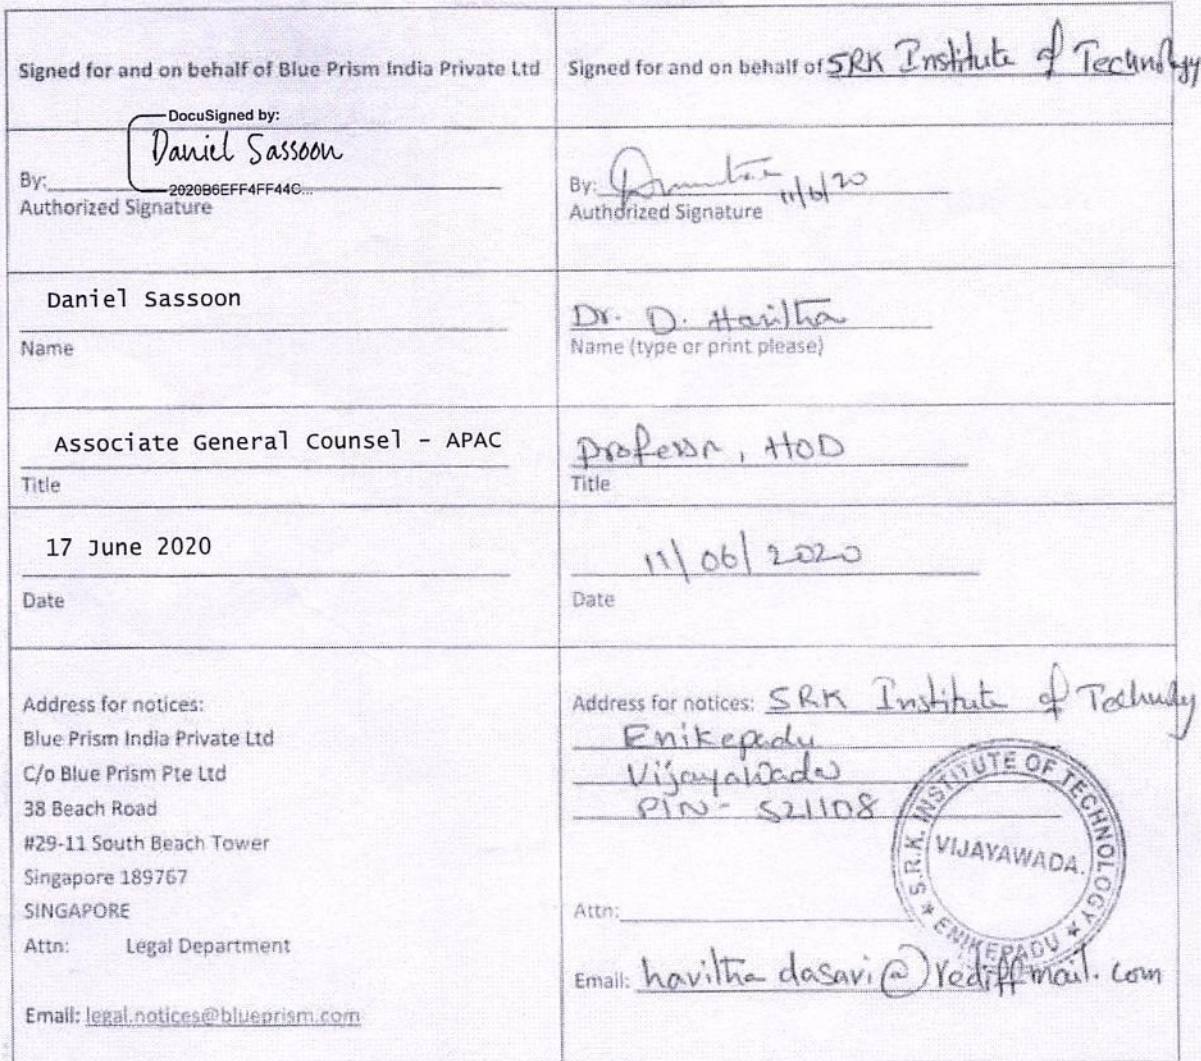 Signed for and on behalf of Blue Prism India Private Ltd
Signed for and on behalf of SRK Institute of Technology
DocuSigned by:
Daniel Sassoon
By:
2020B6EFF4FF44C...
Authorized Signature
By: 11/6/20
Authorized Signature
Daniel Sassoon
Name
Dr. D. Haritha
Name (type or print please)
Associate General Counsel - APAC
Title
Professor, HOD
Title
17 June 2020
Date
11/06/2020
Date
Address for notices:
Blue Prism India Private Ltd
C/o Blue Prism Pte Ltd
38 Beach Road
#29-11 South Beach Tower
Singapore 189767
SINGAPORE
Attn: Legal Department
Email: legal.notices@blueprism.com
Address for notices: SRK Institute of Technology
Enikepadu
Vijayawada
PIN- 521108
Attn:
Email: haritha dasari@rediffmail.com
S.R.K. INSTITUTE OF TECHNOLOGY
VIJAYAWADA.
★ ENIKEPADU ★